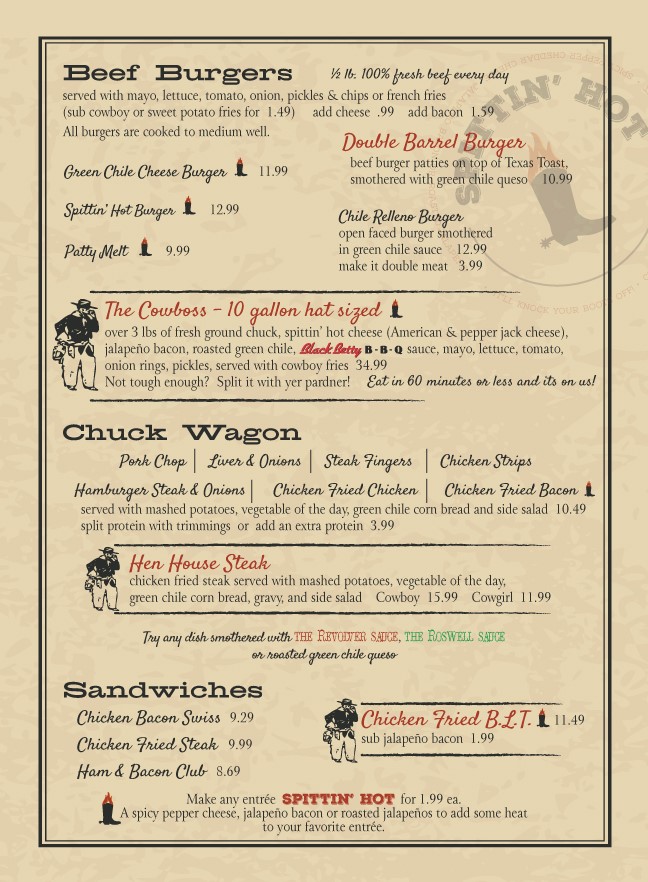 Beef Burgers ½ lb. 100% fresh beef every day
served with mayo, lettuce, tomato, onion, pickles & chips or french fries
(sub cowboy or sweet potato fries for 1.49) add cheese .99 add bacon 1.59
All burgers are cooked to medium well.
Green Chile Cheese Burger 11.99
Spittin' Hot Burger 12.99
Patty Melt 9.99
Double Barrel Burger
beef burger patties on top of Texas Toast,
smothered with green chile queso 10.99
Chile Relleno Burger
open faced burger smothered
in green chile sauce 12.99
make it double meat 3.99
SPITTIN' HOT
The Cowboss - 10 gallon hat sized
over 3 lbs of fresh ground chuck, spittin' hot cheese (American & pepper jack cheese),
jalapeño bacon, roasted green chile, Black Betty B-B-Q sauce, mayo, lettuce, tomato,
onion rings, pickles, served with cowboy fries 34.99
Not tough enough? Split it with yer pardner! Eat in 60 minutes or less and its on us!
Chuck Wagon
Pork Chop | Liver & Onions | Steak Fingers | Chicken Strips
Hamburger Steak & Onions | Chicken Fried Chicken | Chicken Fried Bacon
served with mashed potatoes, vegetable of the day, green chile corn bread and side salad 10.49
split protein with trimmings or add an extra protein 3.99
Hen House Steak
chicken fried steak served with mashed potatoes, vegetable of the day,
green chile corn bread, gravy, and side salad Cowboy 15.99 Cowgirl 11.99
Try any dish smothered with THE REVOLVER SAUCE, THE ROSWELL SAUCE
or roasted green chile queso
Sandwiches
Chicken Bacon Swiss 9.29
Chicken Fried Steak 9.99
Ham & Bacon Club 8.69
Chicken Fried B.L.T. 11.49
sub jalapeño bacon 1.99
Make any entrée SPITTIN' HOT for 1.99 ea.
A spicy pepper cheese, jalapeño bacon or roasted jalapeños to add some heat
to your favorite entrée.